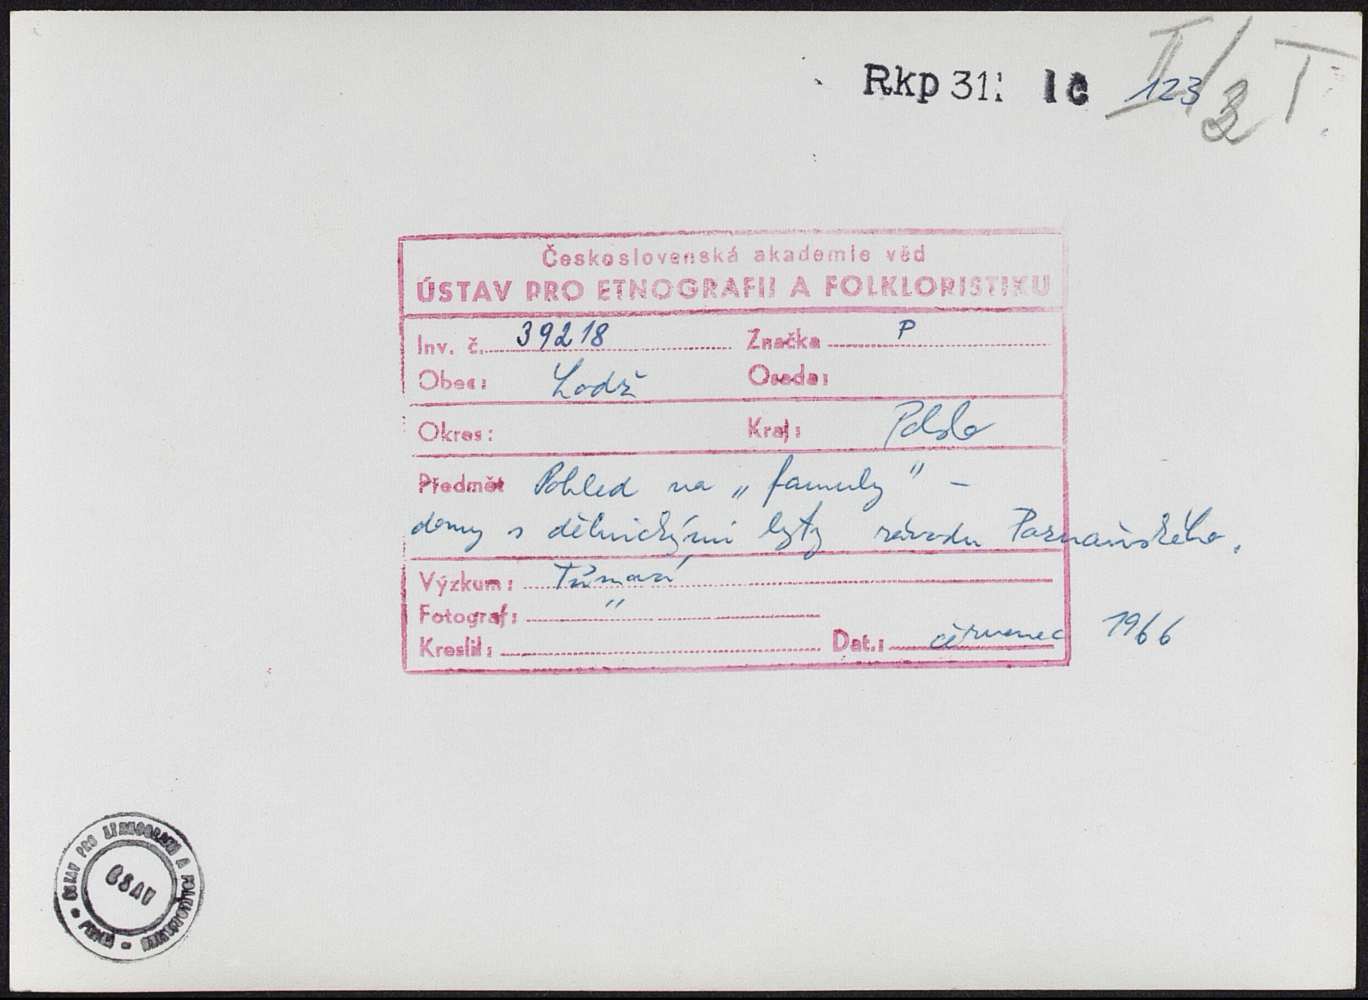 Rkp 311 123 II/2 I.
Československá akademie věd
ÚSTAV PRO ETNOGRAFII A FOLKLORISTIKU
Inv. č. 39218 Značka P
Obec: Lodž Osada:
Okres: Kraj: Polsko
Předmět Pohled na „famuly" –
domy s dělnickými byty závodu Poznaňského.
Výzkum: Tůmová
Fotograf: "
Kreslil: Dat.: červenec 1966
ÚSTAV PRO ETNOGRAFII A FOLKLORISTIKU
ČSAV